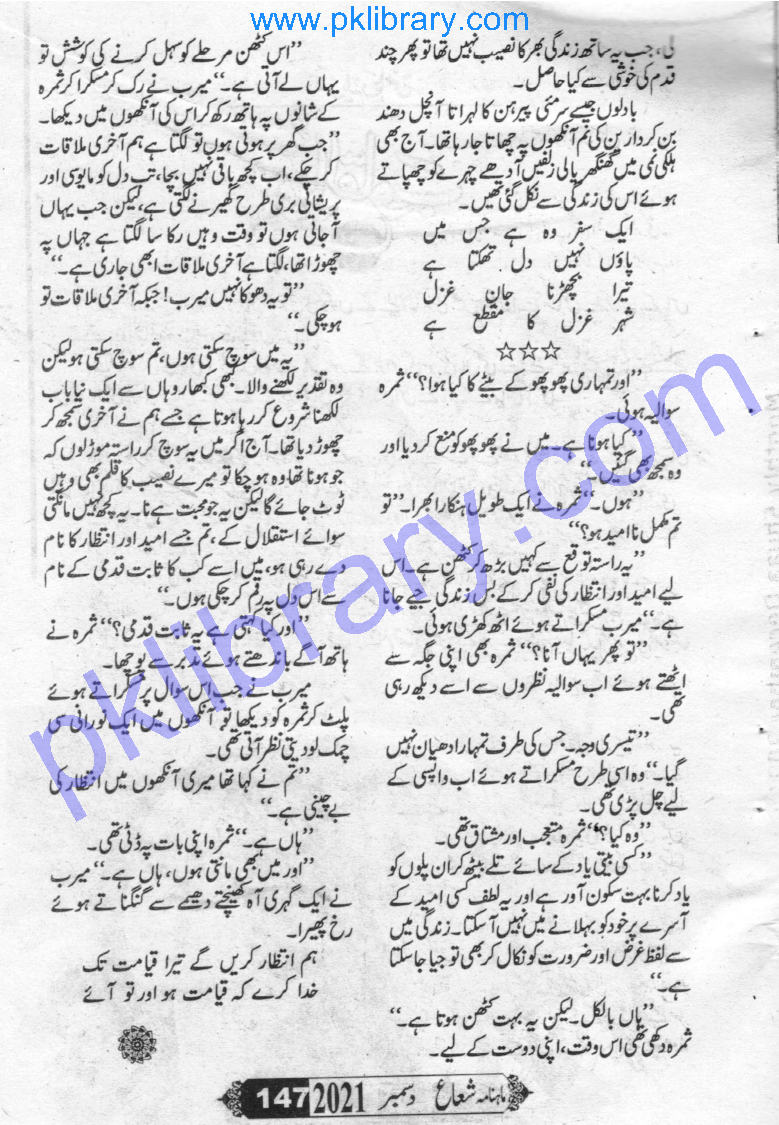 www.pklibrary.com
لی، جب یہ ساتھ زندگی بھر کا نصیب نہیں تھا تو پھر چند
قدم کی خوشی سے کیا حاصل۔
بادلوں جیسے سرمئی پیرہن کا لہراتا آنچل دھند
بن کر دار بن کی نم آنکھوں پہ چھاتا جا رہا تھا۔ آج بھی
ہلکی نمی میں گھنگھریالی زلفیں آدھے چہرے کو چھپاتے
ہوئے اس کی زندگی سے نکل گئی تھیں۔
ایک سفر وہ ہے جس میں
پاؤں نہیں دل تھکتا ہے
تیرا بچھڑنا جانِ غزل
شہر غزل کا مقطع ہے
☆☆☆
’’اور تمہاری پھوپھو کے بیٹے کا کیا ہوا؟‘‘ ثمرہ
سوالیہ ہوئی۔
’’کیا ہونا ہے۔ میں نے پھوپھو کو منع کر دیا اور
وہ سمجھ بھی گئیں۔‘‘
’’ہوں۔‘‘ ثمرہ نے ایک طویل ہنکارا بھرا۔ ’’تو
تم مکمل نا امید ہو؟‘‘
’’یہ راستہ توقع سے کہیں بڑھ کر کٹھن ہے۔ اس
لیے امید اور انتظار کی نفی کر کے بس زندگی جیے جانا
ہے۔‘‘ میرب مسکراتے ہوئے اٹھ کھڑی ہوئی۔
’’تو پھر یہاں آنا؟‘‘ ثمرہ بھی اپنی جگہ سے
اٹھتے ہوئے اب سوالیہ نظروں سے اسے دیکھ رہی
تھی۔
’’تیسری وجہ۔ جس کی طرف تمہارا دھیان نہیں
گیا۔‘‘ وہ اسی طرح مسکراتے ہوئے اب واپسی کے
لیے چل پڑی تھی۔
’’وہ کیا؟‘‘ ثمرہ متعجب اور مشتاق تھی۔
’’کسی بیتی یاد کے سائے تلے بیٹھ کر ان پلوں کو
یاد کرنا بہت سکون آور ہے اور یہ لطف کسی امید کے
آسرے پر خود کو بہلانے میں نہیں آ سکتا۔ زندگی میں
سے لفظ غرض اور ضرورت کو نکال کر بھی تو جیا جا سکتا
ہے۔‘‘
’’ہاں بالکل۔ لیکن یہ بہت کٹھن ہوتا ہے۔‘‘
ثمرہ دکھی تھی اس وقت، اپنی دوست کے لیے۔
’’اس کٹھن مرحلے کو سہل کرنے کی کوشش تو
یہاں لے آتی ہے۔‘‘ میرب نے رک کر مسکرا کر ثمرہ
کے شانوں پہ ہاتھ رکھ کر اس کی آنکھوں میں دیکھا۔
’’جب گھر پر ہوتی ہوں تو لگتا ہے ہم آخری ملاقات
کر چکے، اب کچھ باقی نہیں بچا، تب دل کو مایوسی اور
پریشانی بری طرح گھیرنے لگتی ہے، لیکن جب یہاں
آ جاتی ہوں تو وقت وہیں رکا سا لگتا ہے جہاں پہ
چھوڑا تھا، لگتا ہے آخری ملاقات ابھی جاری ہے۔‘‘
’’تو یہ دھوکا نہیں میرب! جبکہ آخری ملاقات تو
ہو چکی۔‘‘
’’یہ میں سوچ سکتی ہوں، تم سوچ سکتی ہو لیکن
وہ تقدیر لکھنے والا۔ کبھی کبھار وہاں سے ایک نیا باب
لکھنا شروع کر رہا ہوتا ہے جسے ہم نے آخری سمجھ کر
چھوڑ دیا تھا۔ آج اگر میں یہ سوچ کر راستہ موڑ لوں کہ
جو ہونا تھا وہ ہو چکا تو میرے نصیب کا قلم بھی وہیں
ٹوٹ جائے گا لیکن یہ جو محبت ہے نا۔ یہ کچھ نہیں مانگتی
سوائے استقلال کے، تم جسے امید اور انتظار کا نام
دے رہی ہو، میں اسے کب کا ثابت قدمی کے نام
سے اس دل پہ رقم کر چکی ہوں۔‘‘
’’اور کیا کہتی ہے یہ ثابت قدمی؟‘‘ ثمرہ نے
ہاتھ آگے باندھتے ہوئے تدبر سے پوچھا۔
میرب نے جب اس سوال پر مسکراتے ہوئے
پلٹ کر ثمرہ کو دیکھا تو آنکھوں میں ایک نورانی سی
چمک لو دیتی نظر آتی تھی۔
’’تم نے کہا تھا میری آنکھوں میں انتظار کی
بے چینی ہے۔‘‘
’’ہاں ہے۔‘‘ ثمرہ اپنی بات پہ ڈٹی تھی۔
’’اور میں بھی مانتی ہوں، ہاں ہے۔‘‘ میرب
نے ایک گہری آہ کھینچتے دھیمے سے گنگناتے ہوئے
رخ پھیرا۔
ہم انتظار کریں گے تیرا قیامت تک
خدا کرے کہ قیامت ہو اور تو آئے
ماہنامہ شعاع دسمبر 2021 147
pklibrary.com